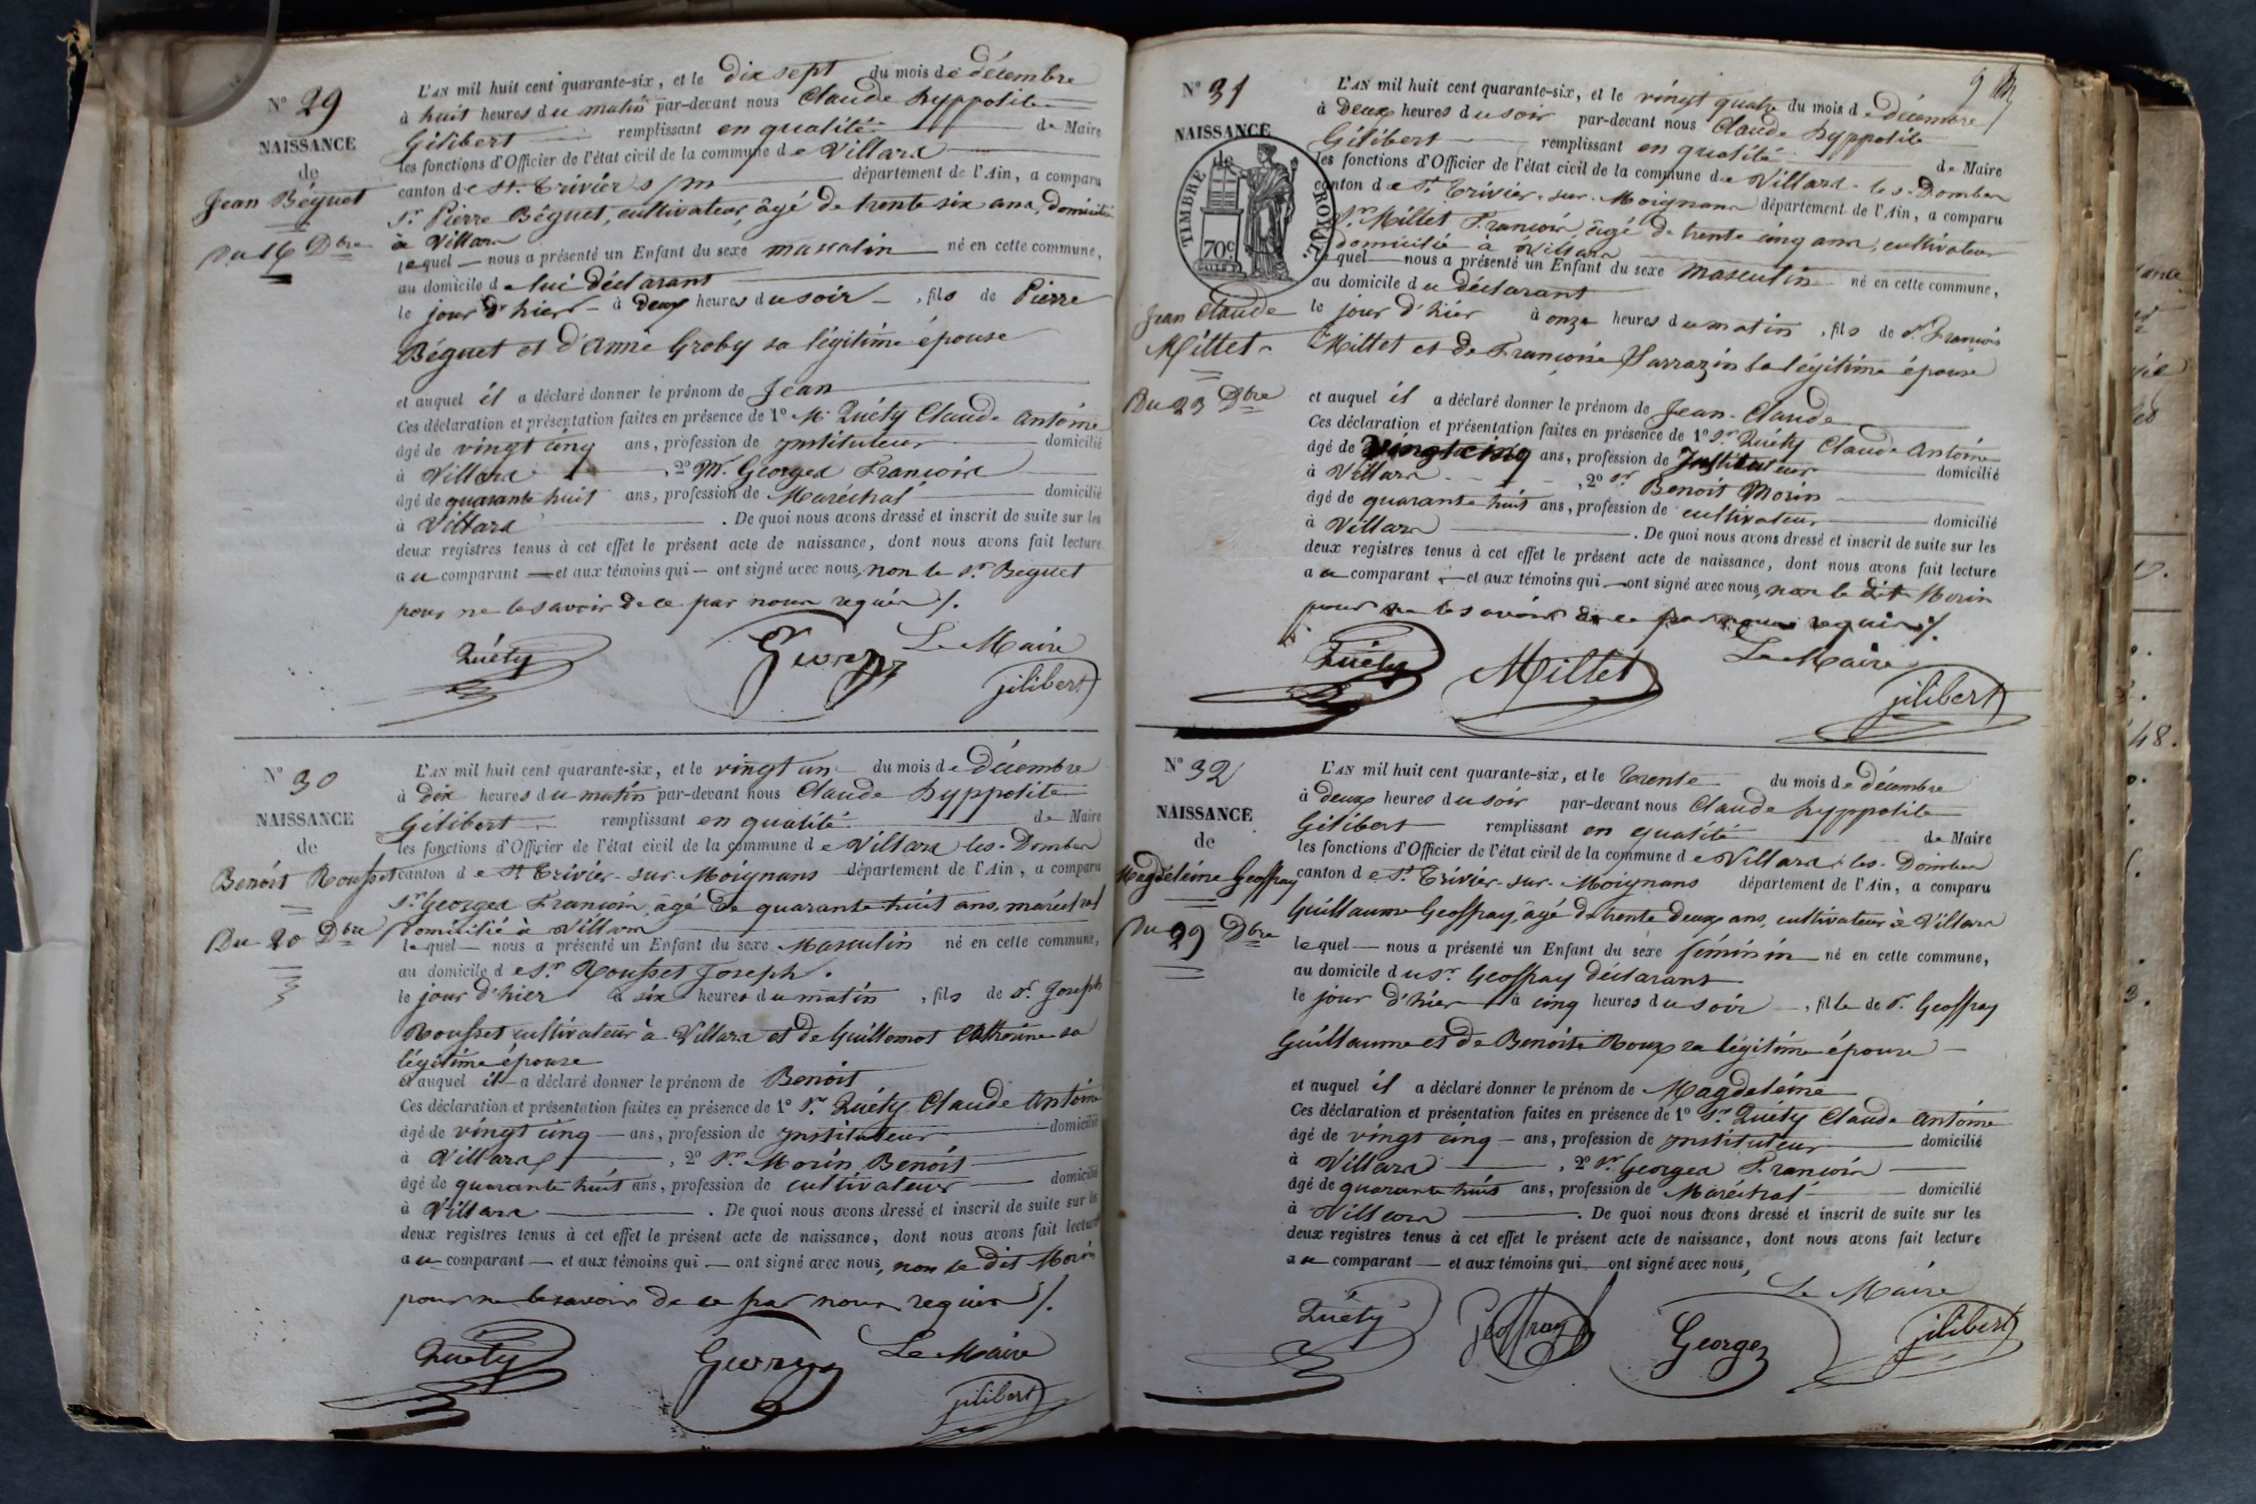 N° 29
NAISSANCE
de
Jean Béguet
Du 16 Dbre
L'AN mil huit cent quarante-six, et le dix sept du mois de décembre
à huit heures du matin par-devant nous Claude hyppolite
Gilibert remplissant en qualité de Maire
les fonctions d'Officier de l'état civil de la commune de Villars
canton de St. Trivier s/m département de l'Ain, a comparu
Sr. Pierre Béguet, cultivateur, âgé de trente six ans, domicilié
à Villars
lequel nous a présenté un Enfant du sexe masculin né en cette commune,
au domicile de lui déclarant
le jour d'hier à deux heures du soir, fils de Pierre
Béguet et d'Anne Groby sa légitime épouse
et auquel il a déclaré donner le prénom de Jean
Ces déclaration et présentation faites en présence de 1° Mr Quéty Claude Antoine
âgé de vingt cinq ans, profession de instituteur domicilié
à Villars, 2° Mr. Georges François
âgé de quarante huit ans, profession de Maréchal domicilié
à Villars. De quoi nous avons dressé et inscrit de suite sur les
deux registres tenus à cet effet le présent acte de naissance, dont nous avons fait lecture
au comparant et aux témoins qui ont signé avec nous, non le Sr. Beguet
pour ne le savoir de ce par nous requis ./.
Quéty Georges Le Maire
gilibert
N° 30
NAISSANCE
de
Benoit Rousset
Du 20 Dbre
L'AN mil huit cent quarante-six, et le vingt un du mois de Décembre
à dix heures du matin par-devant nous Claude hyppolite
Gilibert remplissant en qualité de Maire
les fonctions d'Officier de l'état civil de la commune de Villars les Dombes
canton de St Trivier-sur-Moignans département de l'Ain, a comparu
Sr. Georges François, âgé de quarante huit ans, maréchal
domicilié à Villars
lequel nous a présenté un Enfant du sexe Masculin né en cette commune,
au domicile de Sr. Rousset Joseph.
le jour d'hier à six heures du matin, fils de Sr. Joseph
Rousset cultivateur à Villars et de Guillemot Catherine sa
légitime épouse
et auquel il a déclaré donner le prénom de Benoit
Ces déclaration et présentation faites en présence de 1° Sr. Quéty Claude Antoine
âgé de vingt cinq ans, profession de instituteur domicilié
à Villars, 2° Sr. Morin Benoit
âgé de quarante huit ans, profession de cultivateur domicilié
à Villars. De quoi nous avons dressé et inscrit de suite sur les
deux registres tenus à cet effet le présent acte de naissance, dont nous avons fait lecture
au comparant et aux témoins qui ont signé avec nous, non le dit Morin
pour ne le savoir de ce par nous requis ./.
Quéty Georges Le Maire
gilibert
N° 31
NAISSANCE
de
TIMBRE ROYAL
70c
Jean Claude
Millet
Du 23 Dbre
L'AN mil huit cent quarante-six, et le vingt quatre du mois de Décembre
à Deux heures du soir par-devant nous Claude hyppolite
Gilibert remplissant en qualité de Maire
les fonctions d'Officier de l'état civil de la commune de Villars-les-Dombes
canton de St Trivier-sur-Moignans département de l'Ain, a comparu
Sr. Millet François, âgé de trente cinq ans, cultivateur
domicilié à Villars
lequel nous a présenté un Enfant du sexe masculin né en cette commune,
au domicile du déclarant
le jour d'hier à onze heures du matin, fils de Sr. François
Millet et de Françoise Sarrazin sa légitime épouse
et auquel il a déclaré donner le prénom de Jean-Claude
Ces déclaration et présentation faites en présence de 1° Sr. Quéty Claude Antoine
âgé de vingt cinq ans, profession de Instituteur domicilié
à Villars, 2° Sr. Benoit Morin
âgé de quarante huit ans, profession de cultivateur domicilié
à Villars. De quoi nous avons dressé et inscrit de suite sur les
deux registres tenus à cet effet le présent acte de naissance, dont nous avons fait lecture
au comparant et aux témoins qui ont signé avec nous, non le dit Morin
pour ne le savoir de ce par nous requis ./.
Quéty Millet Le Maire
gilibert
N° 32
NAISSANCE
de
Magdeleine Geoffray
Du 29 Dbre
L'AN mil huit cent quarante-six, et le trente du mois de décembre
à deux heures du soir par-devant nous Claude hyppolite
Gilibert remplissant en qualité de Maire
les fonctions d'Officier de l'état civil de la commune de Villars-les-Dombes
canton de St. Trivier-sur-Moignans département de l'Ain, a comparu
Guillaume Geoffray, âgé de trente deux ans, cultivateur à Villars
lequel nous a présenté un Enfant du sexe féminin né en cette commune,
au domicile du Sr. Geoffray déclarant
le jour d'hier à cinq heures du soir, fille de Sr. Geoffray
Guillaume et de Benoite Roux sa légitime épouse
et auquel il a déclaré donner le prénom de Magdeleine
Ces déclaration et présentation faites en présence de 1° Sr Quéty Claude Antoine
âgé de vingt cinq ans, profession de instituteur domicilié
à Villars, 2° Sr Georges François
âgé de quarante huit ans, profession de Maréchal domicilié
à Villars. De quoi nous avons dressé et inscrit de suite sur les
deux registres tenus à cet effet le présent acte de naissance, dont nous avons fait lecture
au comparant et aux témoins qui ont signé avec nous,
Le Maire
Quéty Geoffray Georges gilibert
48.